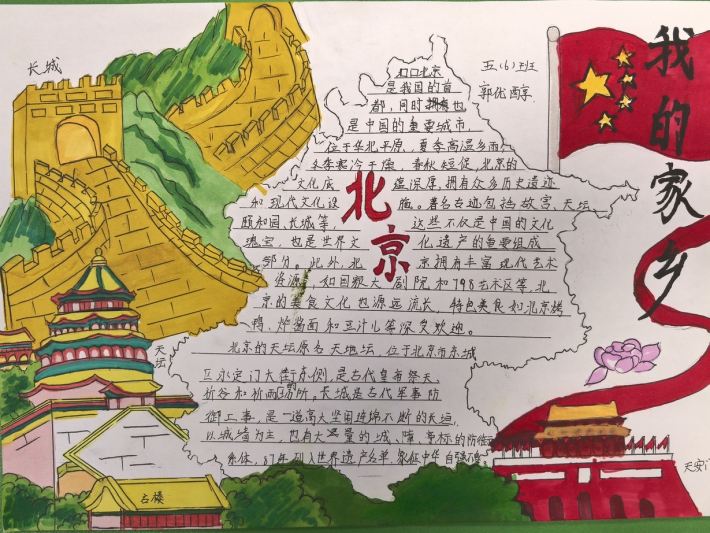 我的家乡
长城
五(6)班
郭优醇
北京
北京
是我国的首
都，同时拥有也
是中国的重要城市，
位于华北平原，夏季高温多雨
冬季寒冷干燥，春秋短促，北京的
文化底蕴深厚，拥有众多历史遗迹
和现代文化设施。著名古迹包括故宫、天坛
颐和园、长城等 这些不仅是中国的文化
瑰宝，也是世界文化遗产的重要组成
部分。此外，北京拥有丰富现代艺术
资源，如国家大剧院和798艺术区等，北
京的美食文化也源远流长，特色美食如北京烤
鸭，炸酱面和豆汁儿等深受欢迎。
北京的天坛原名天地坛，位于北京市东城
区永定门大街东侧，是古代皇帝祭天
祈谷和祈雨场所。长城是古代军事防
御工事，是一道高大坚固连绵不断的长垣
以城墙为主，也有大量的城、障、亭标的防御
系体，87年列入世界遗产名单
天坛
古楼
天安门